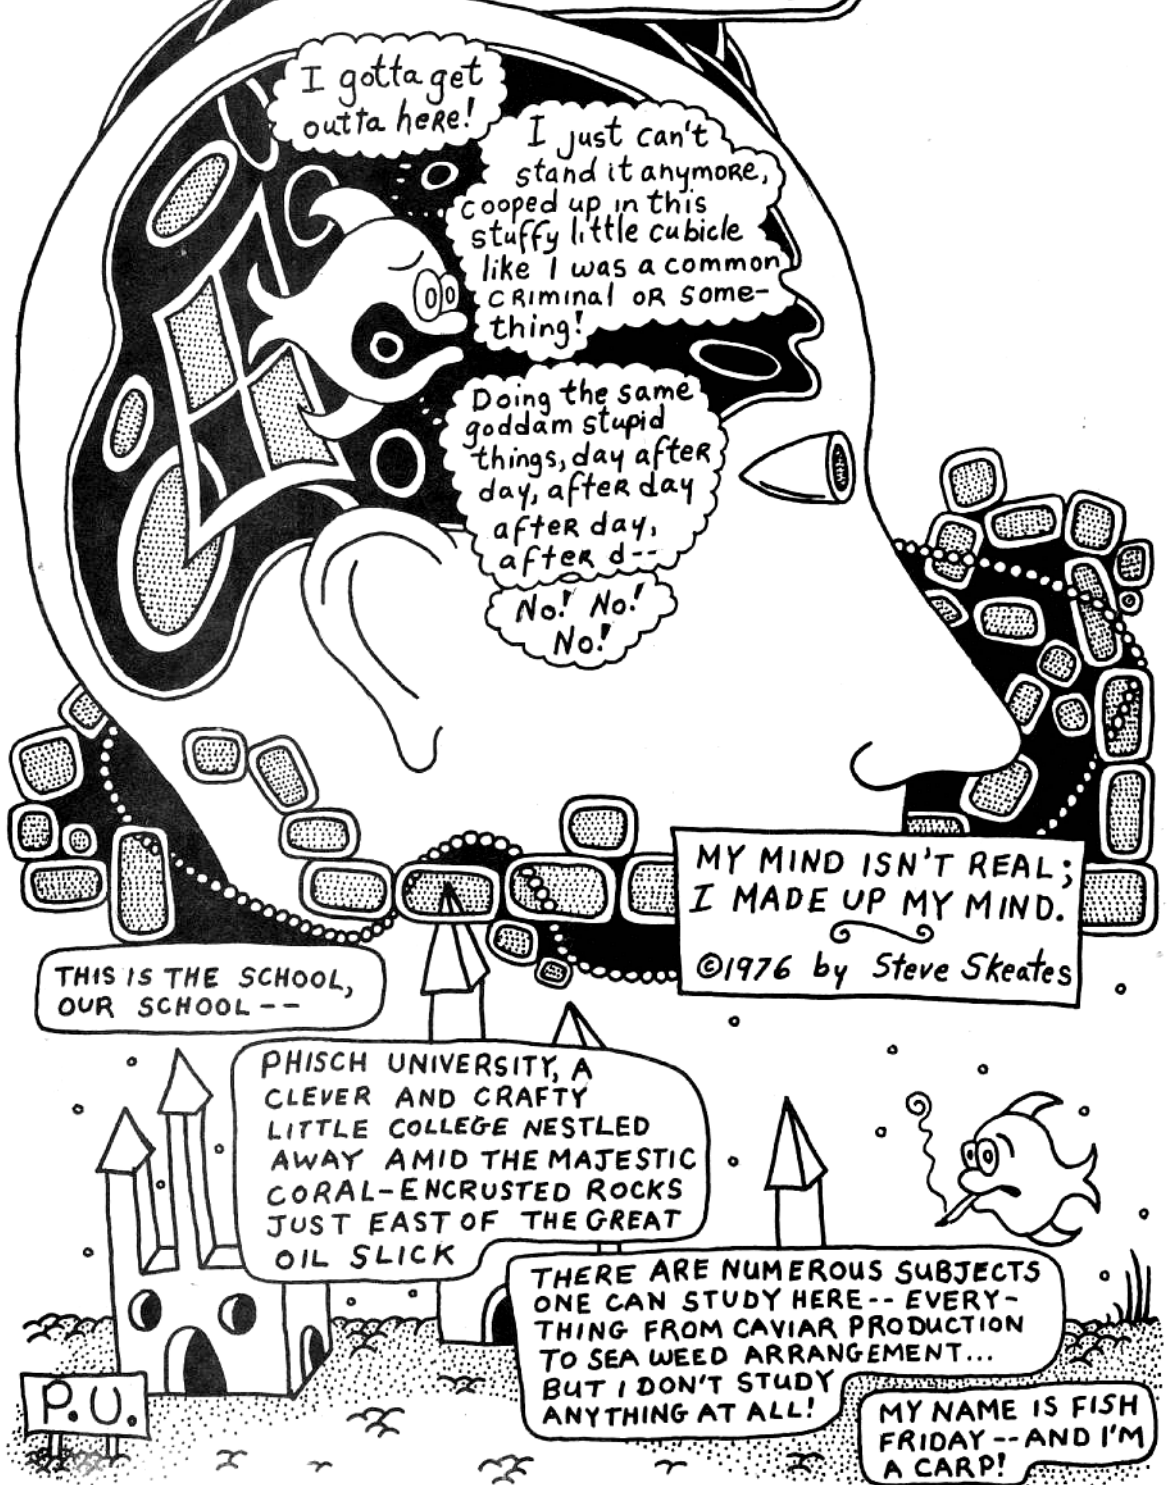 I gotta get
outta here!
I just can't
stand it anymore,
cooped up in this
stuffy little cubicle
like I was a common
criminal or some-
thing!
Doing the same
goddam stupid
things, day after
day, after day
after day,
after d--
No! No!
No!
MY MIND ISN'T REAL;
I MADE UP MY MIND.
©1976 by Steve Skeates
THIS IS THE SCHOOL,
OUR SCHOOL--
PHISCH UNIVERSITY, A
CLEVER AND CRAFTY
LITTLE COLLEGE NESTLED
AWAY AMID THE MAJESTIC
CORAL-ENCRUSTED ROCKS
JUST EAST OF THE GREAT
OIL SLICK
THERE ARE NUMEROUS SUBJECTS
ONE CAN STUDY HERE--EVERY-
THING FROM CAVIAR PRODUCTION
TO SEA WEED ARRANGEMENT...
BUT I DON'T STUDY
ANYTHING AT ALL!
P.U.
MY NAME IS FISH
FRIDAY--AND I'M
A CARP!